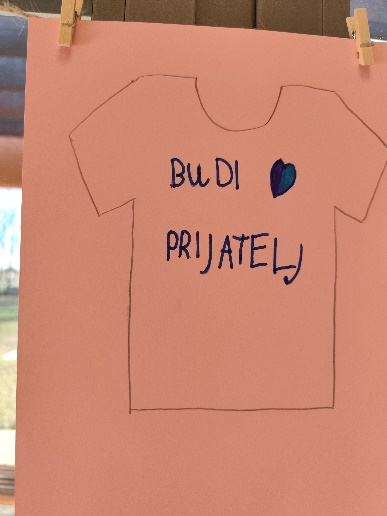 BUDI
PRIJATELJ